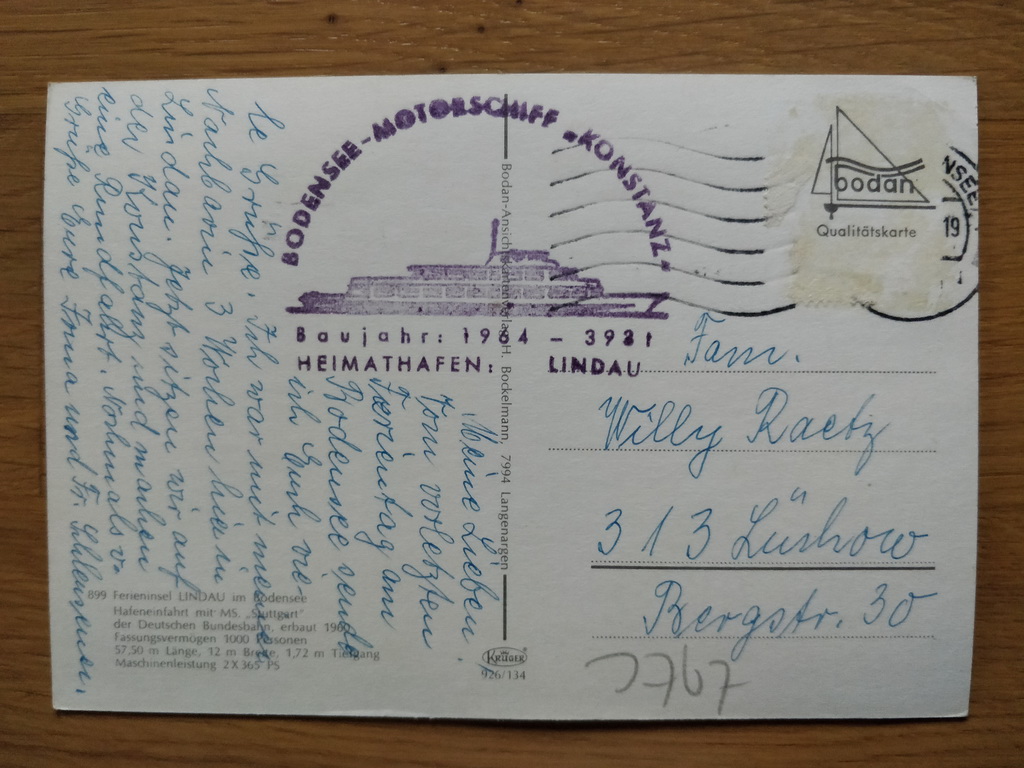 BODENSEE-MOTORSCHIFF "KONSTANZ"
Baujahr: 1964 – 3931
HEIMATHAFEN: LINDAU
Meine Lieben!
Vom vorletzten
Ferientag am
Bodensee sende
ich Euch vie-
le Grüße. Ich war mit meiner
Nachbarin 3 Wochen hier in
Lindau. Jetzt sitzen wir auf
der Konstanz und machen
eine Rundfahrt. Nochmals v.
Grüße Eure Irma und Fr.
899 Ferieninsel LINDAU im Bodensee
Hafeneinfahrt mit MS. „Stuttgart"
der Deutschen Bundesbahn, erbaut 1960
Fassungsvermögen 1000 Personen
57,50 m Länge, 12 m Breite, 1,72 m Tiefgang
Maschinenleistung 2 X 365 PS
Bodan-Ansichtskartenverlag H. Bockelmann, 7994 Langenargen
KRÜGER
926/134
bodan
Qualitätskarte
NSEE
19
Fam.
Willy Raetz
313 Lüchow
Bergstr. 30